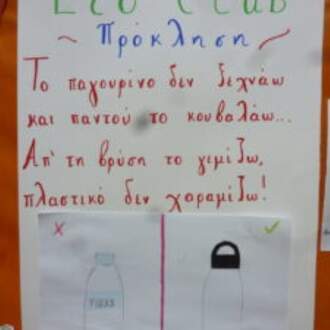 Eco Club
~ Πρόκληση ~
Το παγουρίνο δεν ξεχνάω
και παντού το κουβαλάω...
Απ' τη βρύση το γεμίζω,
πλαστικό δεν χαραμίζω!